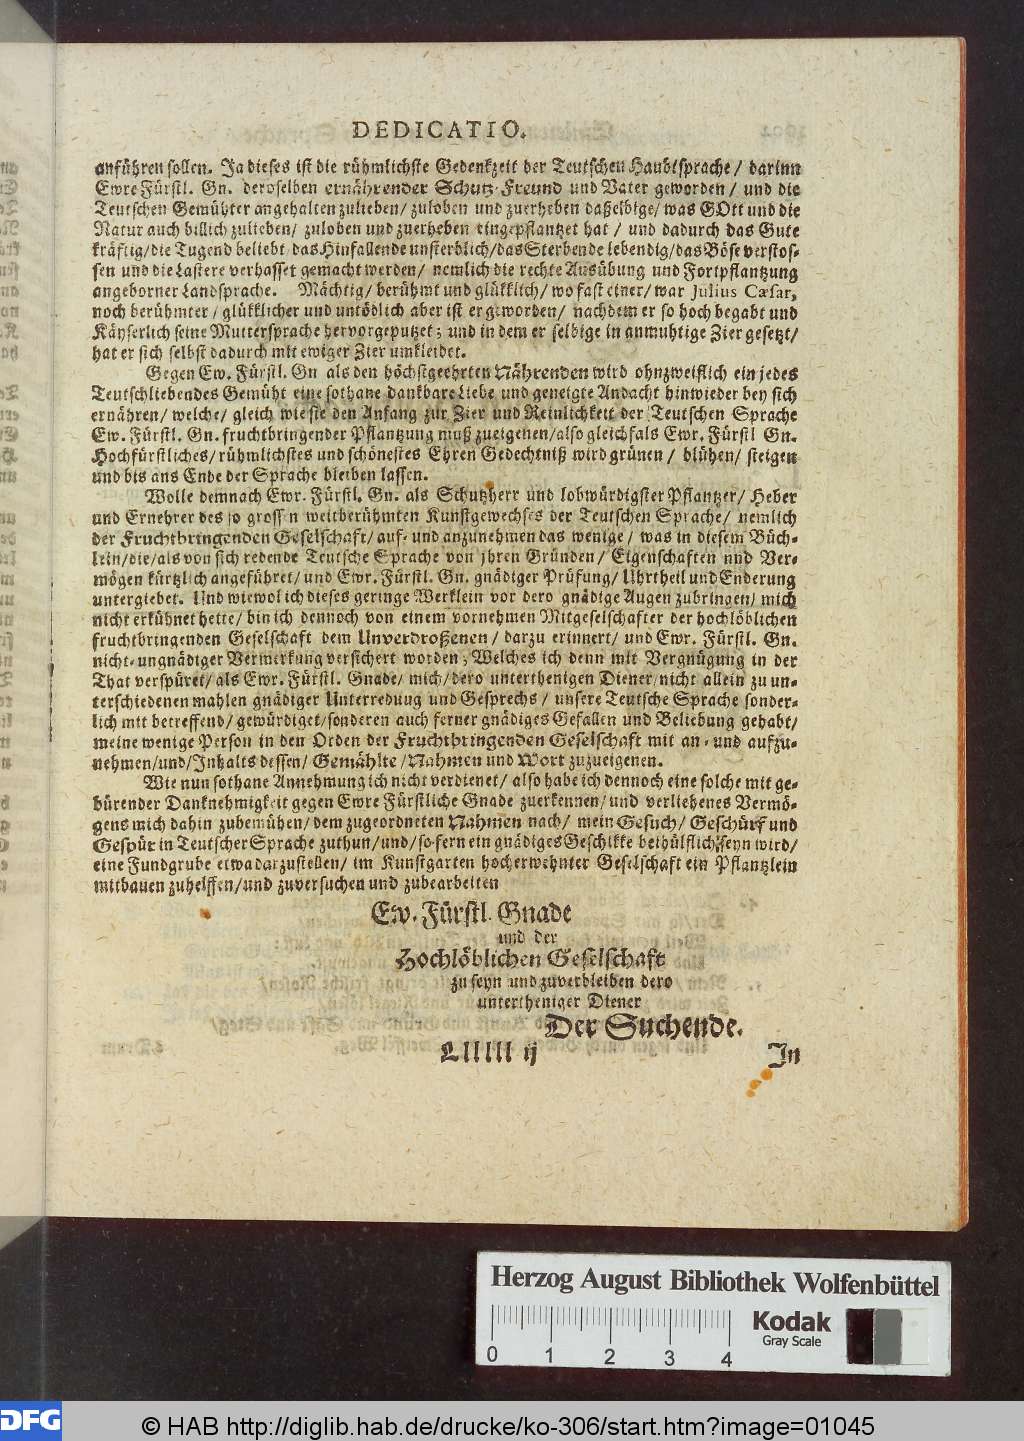 DEDICATIO.
anführen sollen. Ja dieses ist die rühmlichste Gedenkzeit der Teutschen Haubtsprache/ darinn
Ewre Fürstl. Gn. deroselben ernährender Schutz-Freund und Vater geworden/ und die
Teutschen Gemühter angehalten zulieben/ zuloben und zuerheben daßelbige/ was GOtt und die
Natur auch billich zulieben/ zuloben und zuerheben eingepflantzet hat/ und dadurch das Gute
kräftig/die Tugend beliebt das Hinfallende unsterblich/das Sterbende lebendig/das Böse verstos-
sen und die Lastere verhasset gemacht werden/ nemlich die rechte Ausübung und Fortpflantzung
angeborner Landsprache. Mächtig/ berühmt und glükklich/ wo fast einer/ war Julius Cæsar,
noch berühmter/ glükklicher und untödlich aber ist er geworden/ nachdem er so hoch begabt und
Käyserlich seine Muttersprache hervorgeputzet; und in dem er selbige in anmuhtige Zier gesetzt/
hat er sich selbst dadurch mit ewiger Zier umkleidet.
Gegen Ew. Fürstl. Gn als den höchstgeehrten Nährenden wird ohnzweiflich ein jedes
Teutschliebendes Gemüht eine sothane dankbare Liebe und geneigte Andacht hinwieder bey sich
ernähren/ welche/ gleich wie sie den Anfang zur Zier und Reinlichkeit der Teutschen Sprache
Ew. Fürstl. Gn. fruchtbringender Pflantzung muß zueigenen/also gleichfals Ewr. Fürstl Gn.
Hochfürstliches/ rühmlichstes und schönestes Ehren Gedechtniß wird grünen/ blühen/ steigen
und bis ans Ende der Sprache bleiben lassen.
Wolle demnach Ewr. Fürstl. Gn. als Schutzherr und lobwürdigster Pflantzer/ Heber
und Ernehrer des so grossen weitberühmten Kunstgewechses der Teutschen Sprache/ nemlich
der Fruchtbringenden Geselschaft/ auf- und anzunehmen das wenige/ was in diesem Büch-
lein/die/als von sich redende Teutsche Sprache von jhren Gründen/ Eigenschaften und Ver-
mögen kürtzlich angeführet/ und Ewr. Fürstl. Gn. gnädiger Prüfung/ Uhrtheil und Enderung
untergiebet. Und wiewol ich dieses geringe Werklein vor dero gnädige Augen zubringen/ mich
nicht erkühnet hette/ bin ich dennoch von einem vornehmen Mitgeselschafter der hochlöblichen
fruchtbringenden Geselschaft dem Unverdroßenen/ darzu erinnert/ und Ewr. Fürstl. Gn.
nicht-ungnädiger Vermerkung versichert worden; Welches ich denn mit Vergnügung in der
That verspüret/ als Ewr. Fürstl. Gnade/ mich/ dero unterthenigen Diener/ nicht allein zu un-
terschiedenen mahlen gnädiger Unterredung und Gesprechs/ unsere Teutsche Sprache sonder-
lich mit betreffend/ gewürdiget/ sonderen auch ferner gnädiges Gefallen und Beliebung gehabt/
meine wenige Person in den Orden der Fruchtbringenden Geselschaft mit an- und aufzu-
nehmen/und/Inhalts dessen/ Gemählte/Nahmen und Wort zuzueigenen.
Wie nun sothane Annehmung ich nicht verdienet/ also habe ich dennoch eine solche mit ge-
bürender Danknehmigkeit gegen Ewre Fürstliche Gnade zuerkennen/ und verliehenes Vermö-
gens mich dahin zubemühen/ dem zugeordneten Nahmen nach/ mein Gesuch/ Geschürf und
Gespür in Teutscher Sprache zuthun/und/ so fern ein gnädiges Geschikke beihülflich seyn wird/
eine Fundgrube etwa darzustellen/ im Kunstgarten hocherwehnter Geselschaft ein Pflantzlein
mitbauen zuhelffen/und zuversuchen und zubearbeiten
Ew. Fürstl. Gnade
und der
Hochlöblichen Geselschaft
zu seyn und zuverbleiben dero
untertheniger Diener
Der Suchende.
Lllllll ij
In
Herzog August Bibliothek Wolfenbüttel
0 1 2 3 4
Kodak
Gray Scale
DFG
© HAB http://diglib.hab.de/drucke/ko-306/start.htm?image=01045